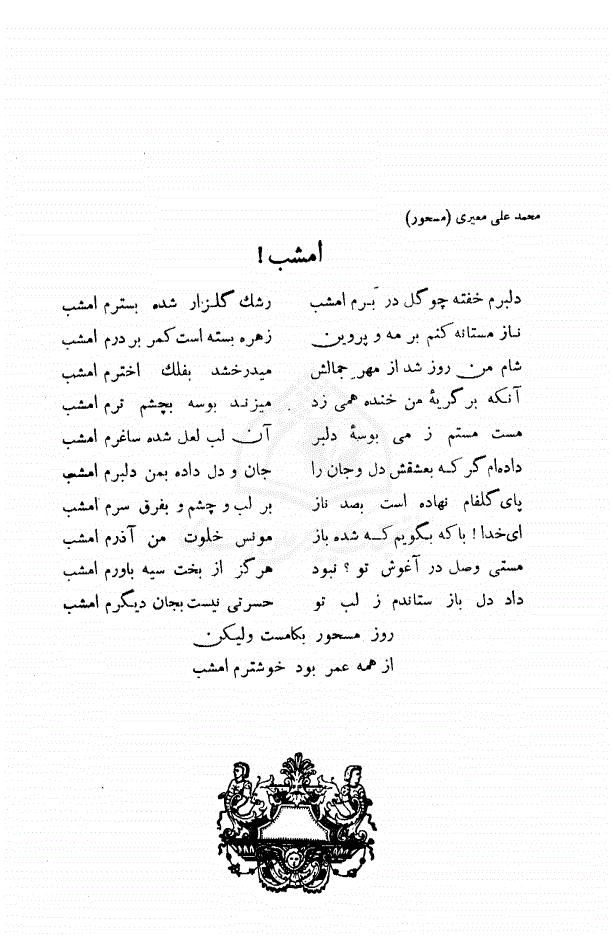 محمد علی معیری (مسحور)
امشب !
دلبرم خفته چو گل در بَرم امشب رشك گلزار شده بسترم امشب
ناز مستانه کنم بر مه و پروین زهره بسته است کمر بر درم امشب
شام من روز شد از مهر جمالش میدرخشد بفلك اخترم امشب
آنکه بر گریهٔ من خنده همی زد میزند بوسه بچشم ترم امشب
مست مستم ز می بوسهٔ دلبر آن لب لعل شده ساغرم امشب
داده‌ام گر که بعشقش دل وجان را جان و دل داده بمن دلبرم امشب
پای گلفام نهاده است بصد ناز بر لب و چشم و بفرق سرم امشب
ای‌خدا ! با که بگویم که شده باز مونس خلوت من آذرم امشب
مستی وصل در آغوش تو ؟ نبود هرگز از بخت سیه باورم امشب
داد دل باز ستاندم ز لب تو حسرتی نیست بجان دیگرم امشب
روز مسحور بکامست ولیکن
از همه عمر بود خوشترم امشب